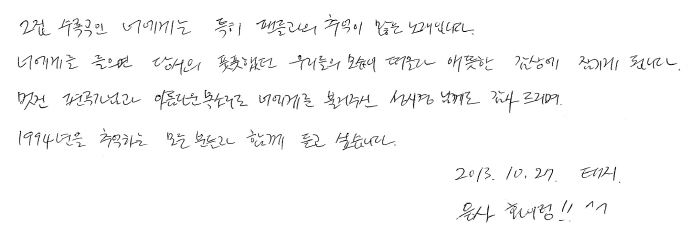 2집 수록곡인 너에게는 특히 팬들과의 추억이 많은 노래입니다.
너에게를 들으면 당시의 풋풋했던 우리들의 모습이 떠올라 애틋한 감상에 잠기게 됩니다.
멋진 편곡가님과 아름다운 목소리로 너에게를 불러주신 성시경 님께도 감사 드리며.
1994년을 추억하는 모든 분들과 함께 듣고 싶습니다.
2013. 10. 27. 태지.
응사 화이팅!! ^^